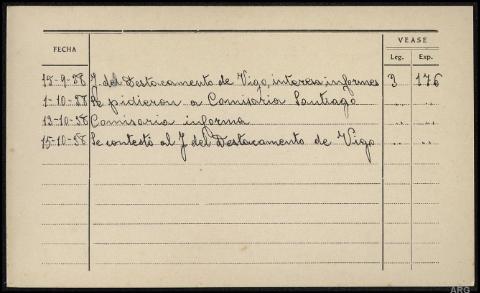 VEASE
FECHA
Leg. Exp.
15-9-58 J. del Destacamento de Vigo, interesa informes 3 176
1-10-58 Se pidieron a Comisaria Santiago " "
13-10-58 Comisaria informa " "
15-10-58 Se contestó al J del Destacamento de Vigo " "
ARG